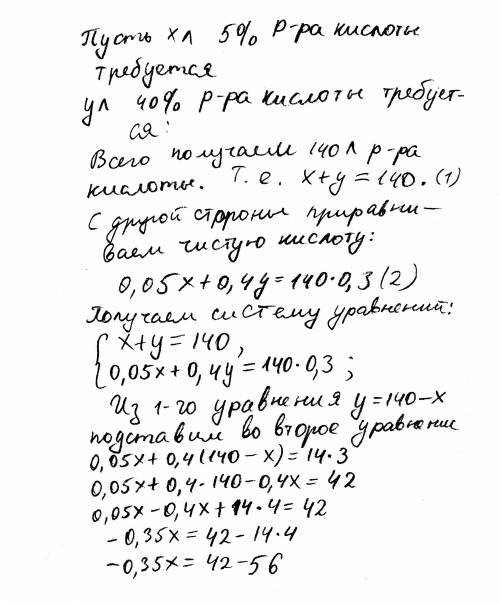 Пусть х л 5% р-ра кислоты
требуется
у л 40% р-ра кислоты требует-
ся:
Всего получаем 140 л р-ра
кислоты. Т.е. x+y=140. (1)
С другой стороны приравни-
ваем чистую кислоту:
0,05x+0,4y=140·0,3 (2)
Получаем систему уравнений:
{ x+y=140,
0,05x+0,4y=140·0,3;
Из 1-го уравнения y=140-x
подставим во второе уравнение
0,05x+0,4(140-x)=14·3
0,05x+0,4·140-0,4x=42
0,05x-0,4x+14·4=42
-0,35x=42-14·4
-0,35x=42-56